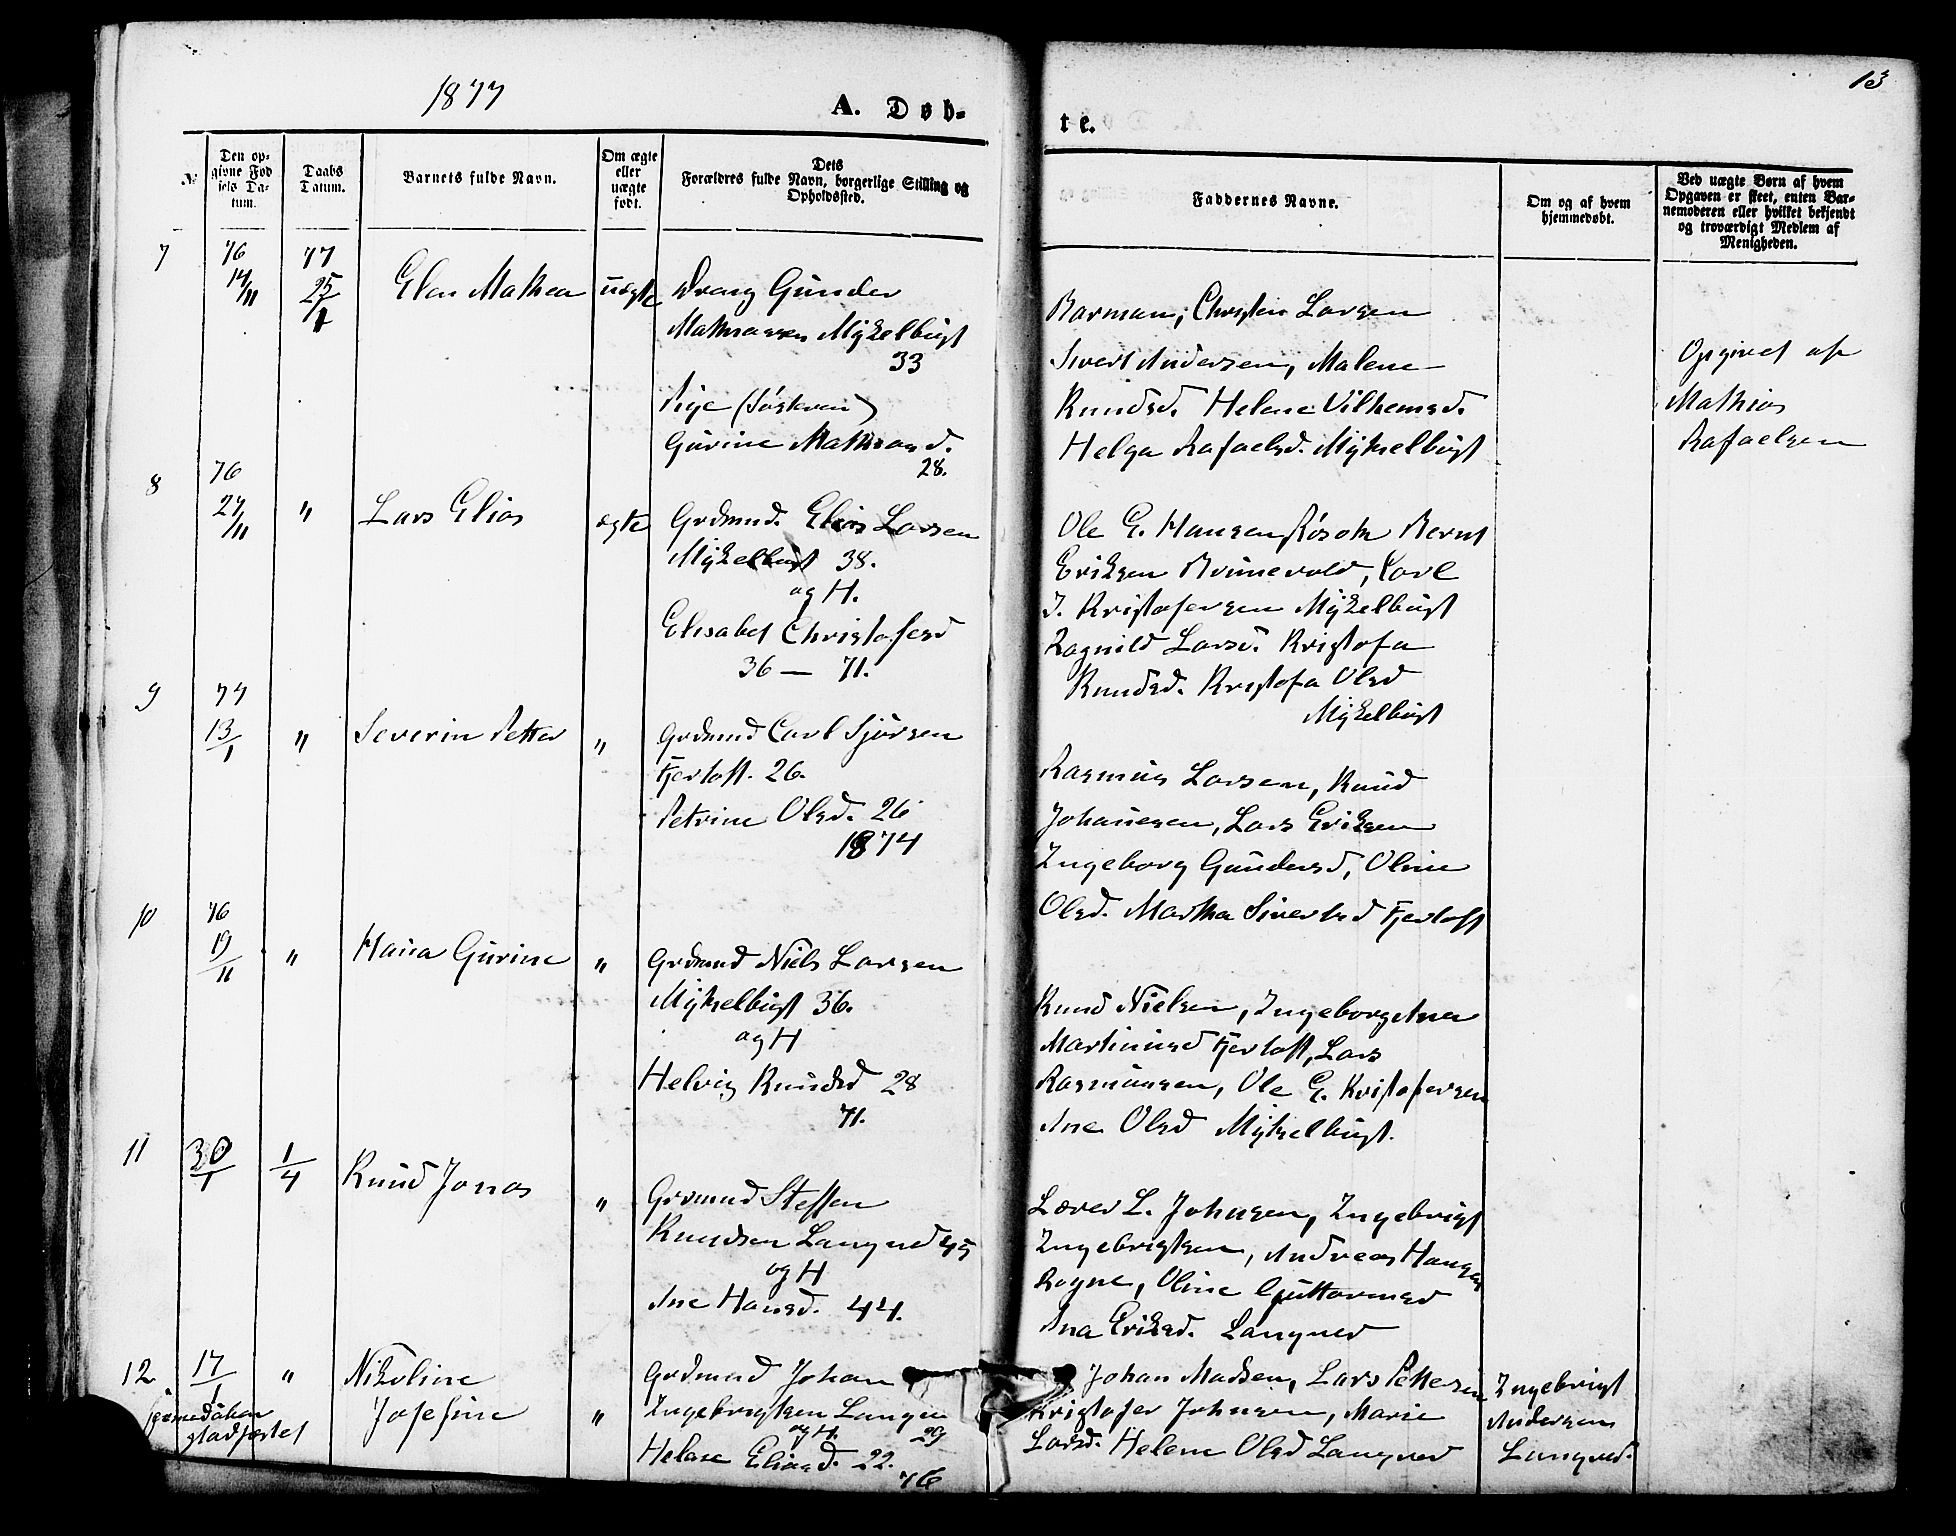 1877
A. Døb-
te.
13
№
Den op-
givne Fød
sels Da-
tum.
Daabs
Datum.
Barnets fulde Navn.
Om ægte
eller
uægte
født.
Dets
Forældres fulde Navn, borgerlige Stilling og
Opholdssted.
Faddernes Navne.
Om og af hvem
hjemmedøbt.
Ved uægte Børn af hvem
Opgaven er skeet, enten Bar-
nemoderen eller hvilket bekjendt
og troværdigt Medlem af
Menigheden.
7
76
14/11
77
25/1
Elen Mathea
uægte
Dreng Gunder
Mathiassen Myklebust
33
Pige (Søskend)
Gurine Mathiasd.
28.
Barman; Christen Larsen
Sivert Andersen, Malene
Knudsd. Helene Vilhemsd.
Helga Rafaelsd. Myklebust
Opgivet af
Mathias
Rafaelsen
8
76
27/11
"
Lars Elias
ægte
Grdmnd. Elias Larsen
Myklebust 38.
og H.
Elisabet Christofersd
36 — 71.
Ole E. Hansen Røsok Bernt
Eriksen Brunevold, Carl
J. Kristofersen Myklebust
Ragnild Larsd. Kristofa
Knudsd. Kristofa Olsd
Myklebust
9
77
13/1
"
Severin Petter
"
Grdmnd Carl Sjursen
Fjertoft. 26.
Petrine Olsd. 26
1874
Rasmus Larsen, Knud
Johannesen, Lars Eriksen
Ingeborg Gundersd, Oline
Olsd. Martha Sivertsd Fjertoft
10
76
19/11
"
Hana Gurine
"
Grdmnd Niels Larsen
Myklebust 36.
og H
Helvig Knudsd 28
71.
Knud Nielsen, Ingeborg Ana
Martinusd Fjertoft, Lars
Rasmussen, Ole E. Kristofersen
Ane Olsd Myklebust.
11
30/1
1/4
Knud Jonas
"
Grdmnd Steffen
Knudsen Langned 45
og H
Ane Hansd. 44.
Lærer L. Johnsen, Ingebrigt
Ingebrigtsen, Andreas Hansen
Rogne, Oline Guttormsd
Ana Eriksd. Langned
12
17/1
"
Nikoline
Josefine
"
Grdmnd Johan
Ingebrigtsen Langne
og H. 29
Helene Eliasd. 22.
76
Johan Madsen, Lars Pettersen
Kristofer Johnsen, Marie
Larsd. Helene Olsd Langned
Ingebrigt
Andersen
Langned.
stadfæstet